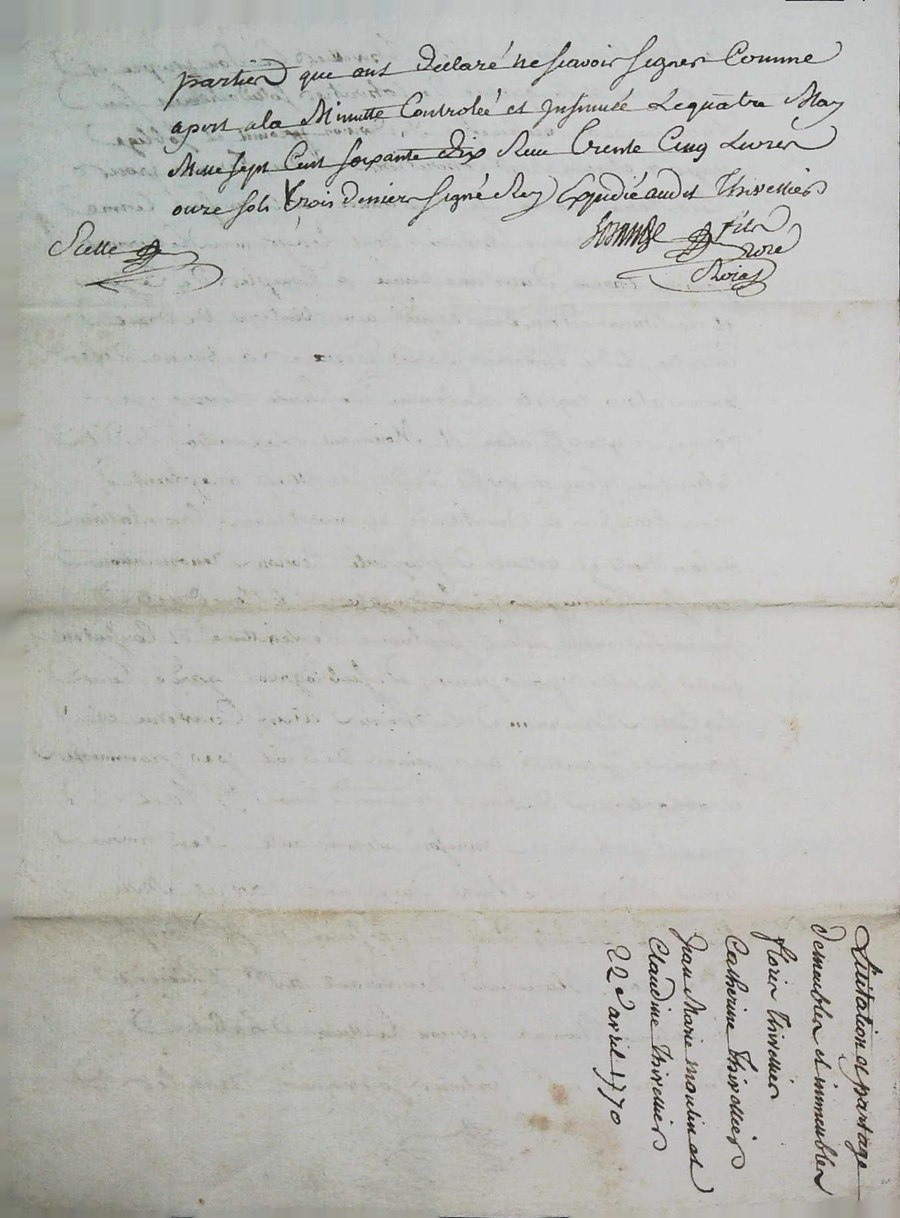 parties que ont declaré ne scavoir signer Comme
apert a la Minutte Controlée et Insinuée Le quatre May
Mille sept Cent soixante dix Reçu Trente Cinq Livres
onze sols trois deniers signé Rey Expedié aud.t Thivellier
Scelle
fils
Nore
Roial
Licitation et partage
de meubles et immeubles
florin thivellier
Catherine thivellier
Jean Marie moulin et
Claudine thivellier
22 d'avril 1770